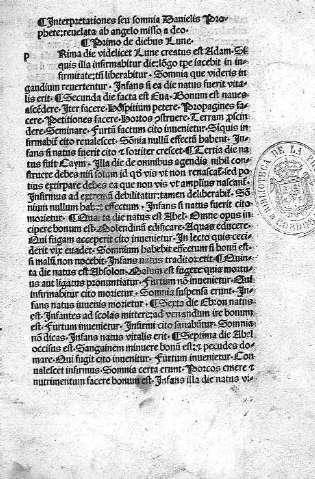 ¶Interpretationes seu somnia Danielis Pro-
phete: reuelata ab angelo misso a deo.
¶Primo de diebus Lune.
PRima die videlicet Lune creatus est Adam. Si
quis illa infirmabitur diu; lõgo tpe iacebit in in-
firmitate; tñ liberabitur. Somnia que videris in
gaudium reuertentur. Infans si ea die natus fuerit vita
lis erit. ¶Secunda die facta est Eua. Bonum est naues
ascẽdere. Iter facere. Hospitium petere. Propagines fa-
cere. Petitiones facere. Hortos ꝯstruere. Terram pscin
dere. Seminare. Furtũ factum cito inuenietur. Si quis in
firmabit cito reualescet. Sõnia nullũ effectũ habent. In-
fans si natus fuerit cito ⁊ fortiter crescet. ¶Tertia die na
tus fuit Caym. Illa die de omnibus agendis nihil con-
struere debes nisi solum id qđ vis vt non renascať. sed po
tius extirpare debes ea que non vis vt amplius nascanť.
Infirmus ad extremũ debilitatur; tamen deliberabiť. Sõ
nium nullum habet effectum. Infans si natus fuerit cito
morietur. ¶Quarta die natus est Abel. Omne opus in
cipere bonum est. Molendinũ edificare. Aquas educere.
Qui fugam acceperit cito inuenietur. In lecto quis ceci
derit vix euadet. Somnium habebit effectum si bonũ est.
si malũ non nocebit. Infans natus traditor erit. ¶Quin-
ta die natus est Absolon. Malum est fugere quia mortu-
us aut ligatus pronuntiatur. Furtum nõ inuenietur. Qui
infirmabitur cito morietur. Somnia suspensa erunt. In-
fans natus inuenis morietur. ¶Sexta die Ebron natus
est. Infantes ad scolas mittere; ad venandum ire bonum
est. Furtum inuenietur. Infirmi cito sanabũtur. Somnia
nõ dicas. Infans natus vitalis erit. ¶Septima die Abel
occisus est. Sanguinem minuere bonũ est; ⁊ pecudes do-
mare. Qui fugit cito inuenietur. Furtum inuenietur. Con
ualescet infirmus. Somnia certa erunt. Porcos emere ⁊
nutrimentum facere bonum est. Infans illa die natus vi-